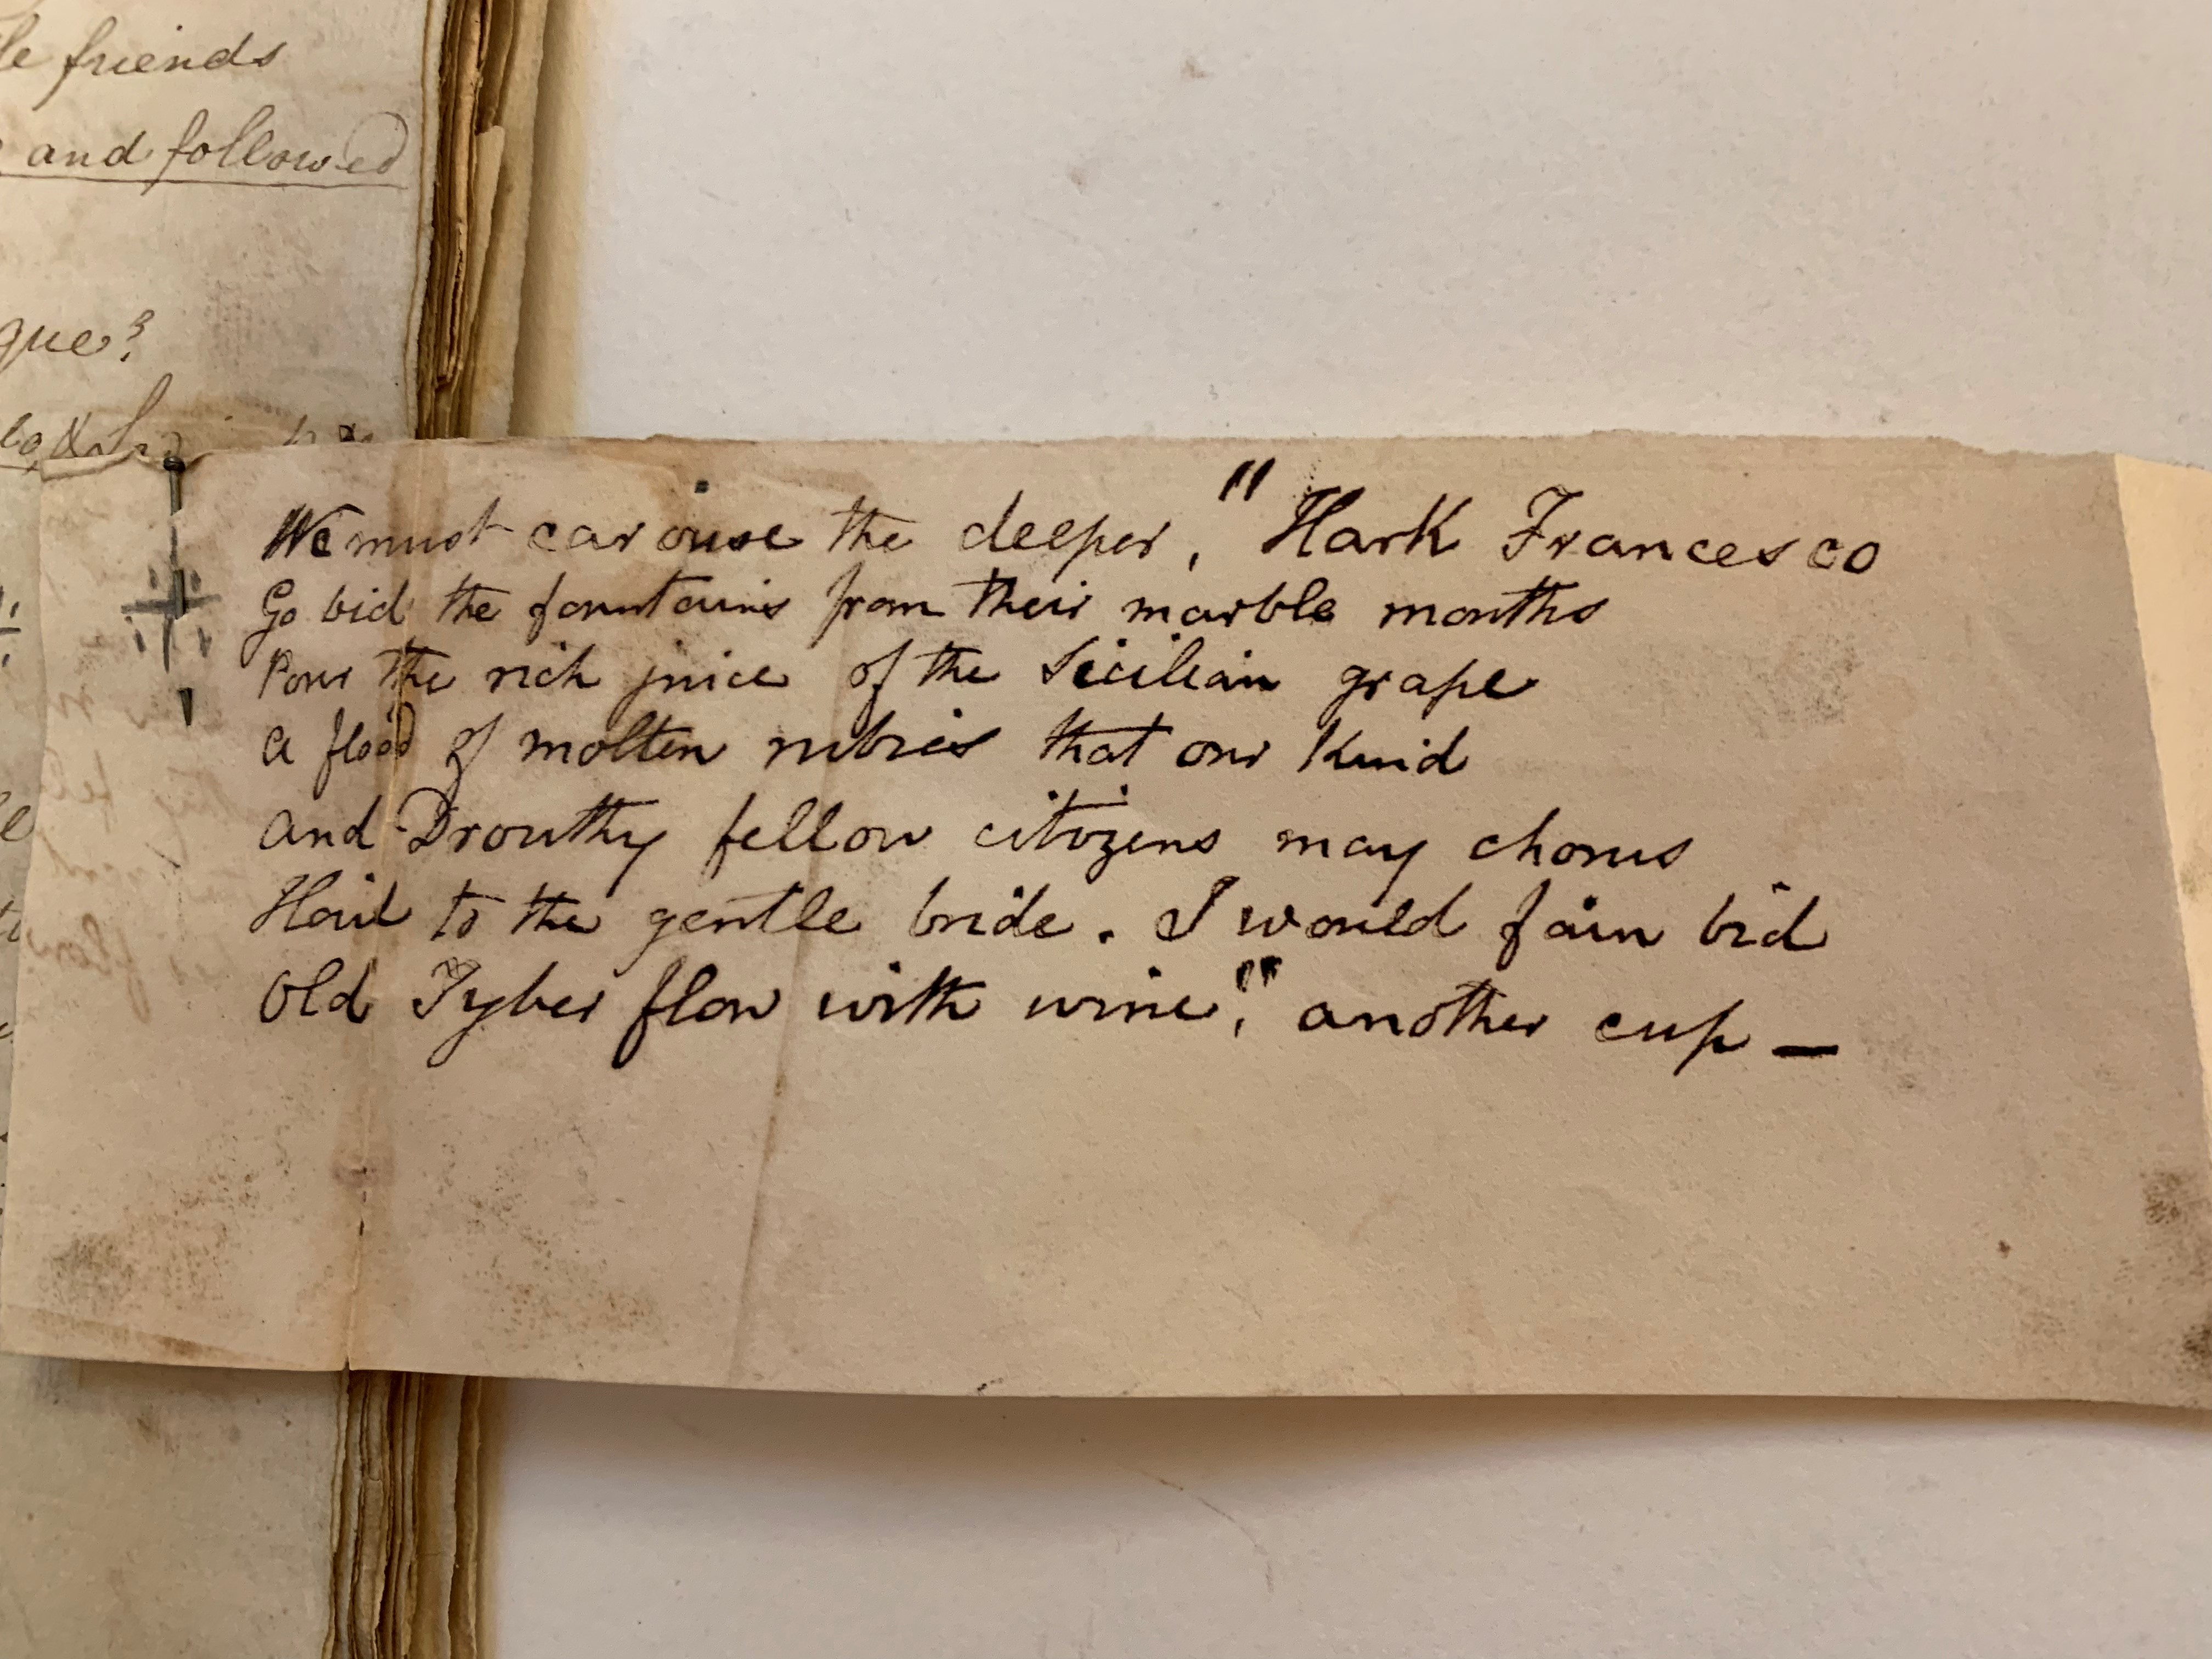 le friends
and followed
gue?
We must carouse the deeper, "Hark Francesco
Go bid the fountains from their marble mouths
Pour the rich juice of the Sicilian grape
a flood of molten rubies that our Kind
and Drouthy fellow citizens may chorus
Hail to the gentle bride. I would fain bid
Old Tyber flow with wine," another cup —